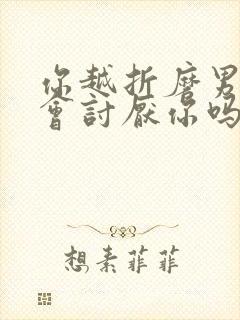 你越折磨男
會討厌你吗
想素菲菲